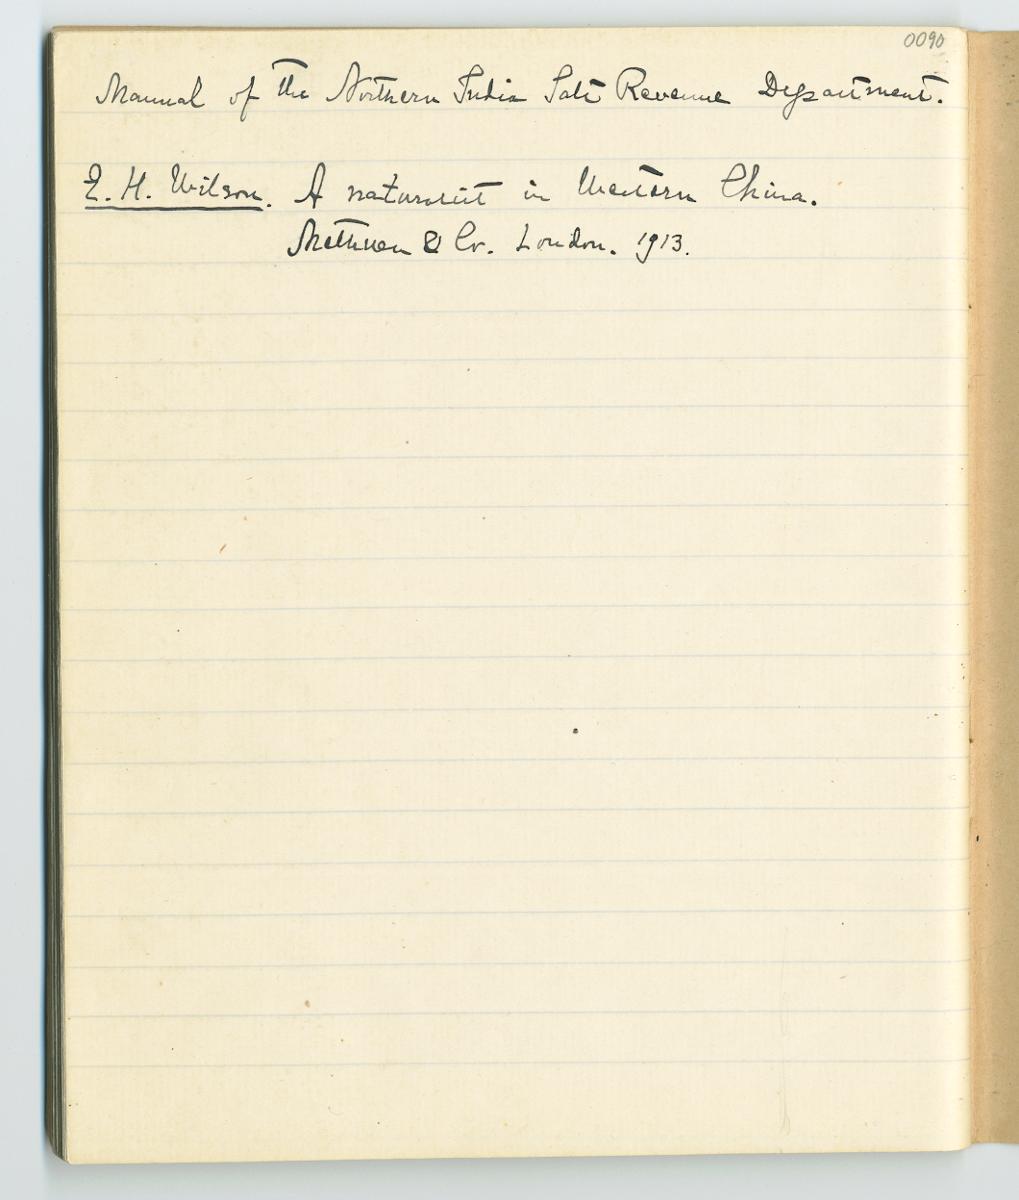 0090
Manual of the Northern India Salt Revenue Department.
E. H. Wilson. A naturalist in Western China.
Methuen & Co. London. 1913.